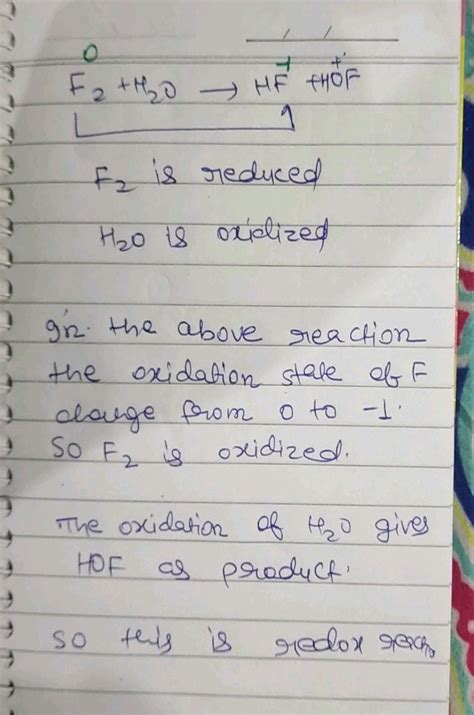 0 -1 +
F2 + H2O → HF + HOF
F2 is reduced
H2O is oxidized
In the above reaction
the oxidation state of F
change from 0 to -1.
SO F2 is oxidized.
The oxidation of H2O gives
HOF as product.
SO this is redox